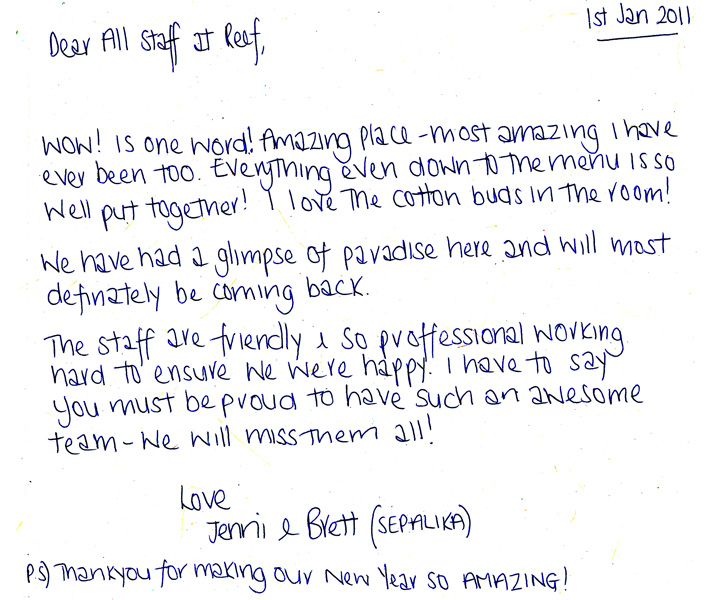 1st Jan 2011
Dear All Staff at Reef,
WOW! Is one word! Amazing place - most amazing I have
ever been too. Everything even down to the menu is so
well put together! I love the cotton buds in the room!
We have had a glimpse of paradise here and will most
definately be coming back.
The staff are friendly & so proffessional working
hard to ensure we were happy. I have to say
you must be proud to have such an awesome
team - we will miss them all!
Love
Jenni & Brett (SEPALIKA)
P.S) Thankyou for making our New Year so AMAZING!